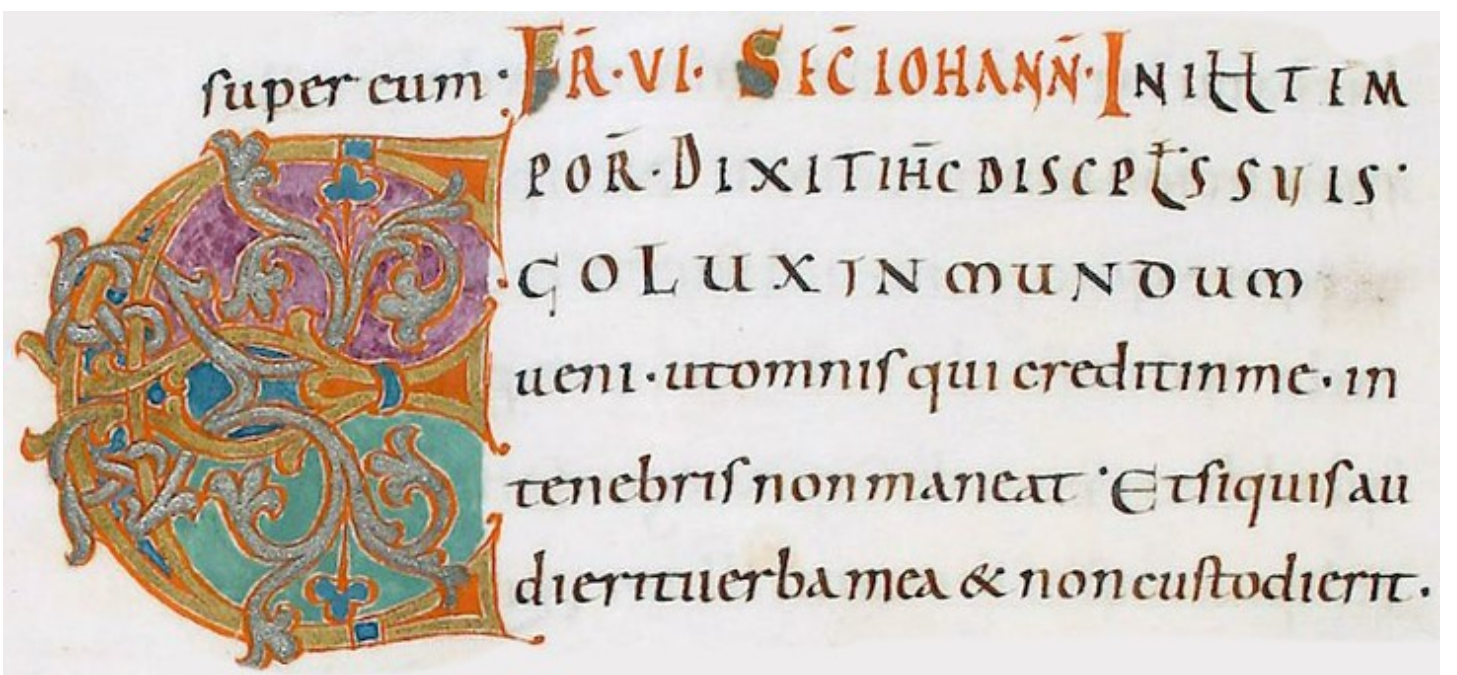 super eum · FR̄·VI· SEC̄ IOHANN̄· IN ILL TEM
POR̄· DIXIT IHC̄ DISCPLꝉS SUIS·
EGO LUX IN MUNDUM
ueni · ut omnis qui credit in me · in
tenebris non maneat · Et si quis au
dierit uerba mea & non custodierit ·